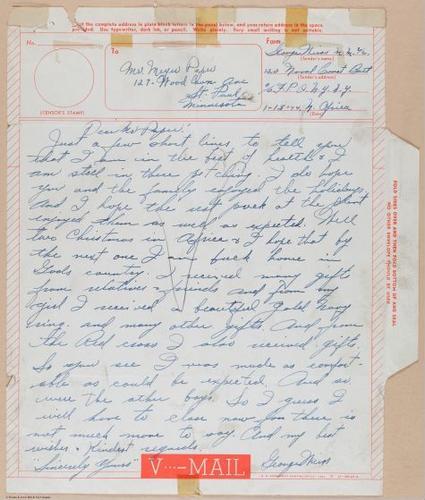 the complete address in plain block letters in the panel below, and your return address in the space
provided. Use typewriter, dark ink, or pencil. Write plainly. Very small writing is not suitable.
No.
To
From
Mr. Meyer Paper
127 - Wood Ave
St. Paul
Minnesota
George
(Sender's name)
120 Naval Const Batt
(Sender's address)
% F.P.O. N.Y. N.Y.
1-13-44, N. Africa
(Date)
(CENSOR'S STAMP)
Dear Mr Paper:
Just a few short lines to tell you
that I am in the best of health & I
am still in there pitching. I do hope
you and the family enjoyed the holidays
And I hope the rest back at the plant
enjoyed them as well as expected. Well
two Christmas in Africa & I hope that by
the next one I am back home in
Gods country. I received many gifts
from relatives & friends and from my
girl I received a beautiful gold navy
ring. and many other gifts. And from
the Red Cross I also received gifts.
So you see I was made as comfort-
able as could be expected. And so
were the other boys. So I guess I
will have to close now for there is
not much more to say. And my best
wishes & kindest regards.
"Sincerely Yours"
George
V···—MAIL
FOLD SIDES OVER AND THEN FOLD BOTTOM UP AND SEAL
NO OTHER ENVELOPE SHOULD BE USED